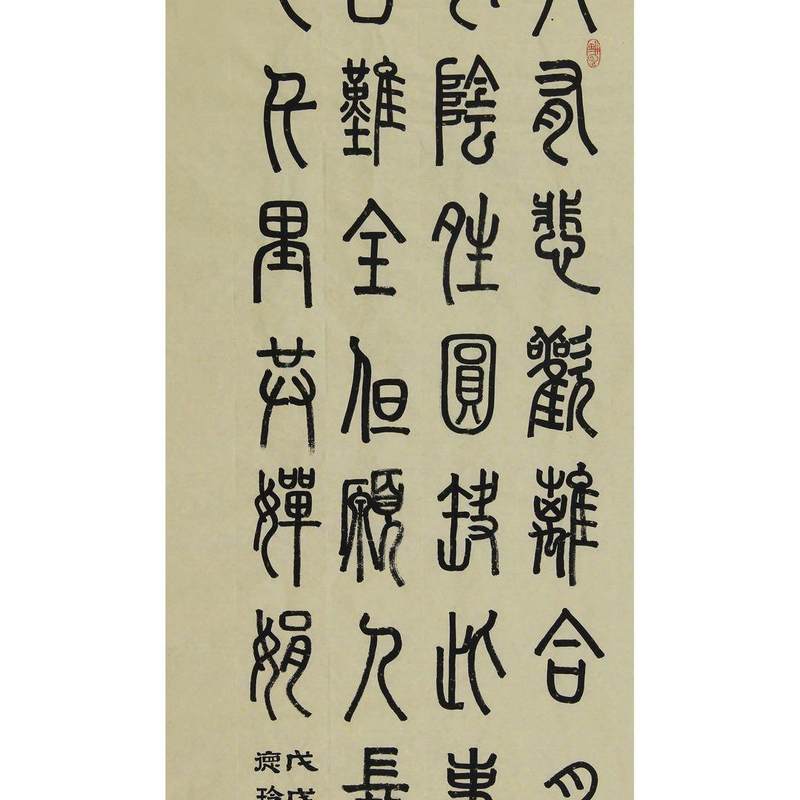 人有悲歡離合月
有陰夝圓缺此事
古難全但願人長
久千里共嬋娟
戊戌
德玲